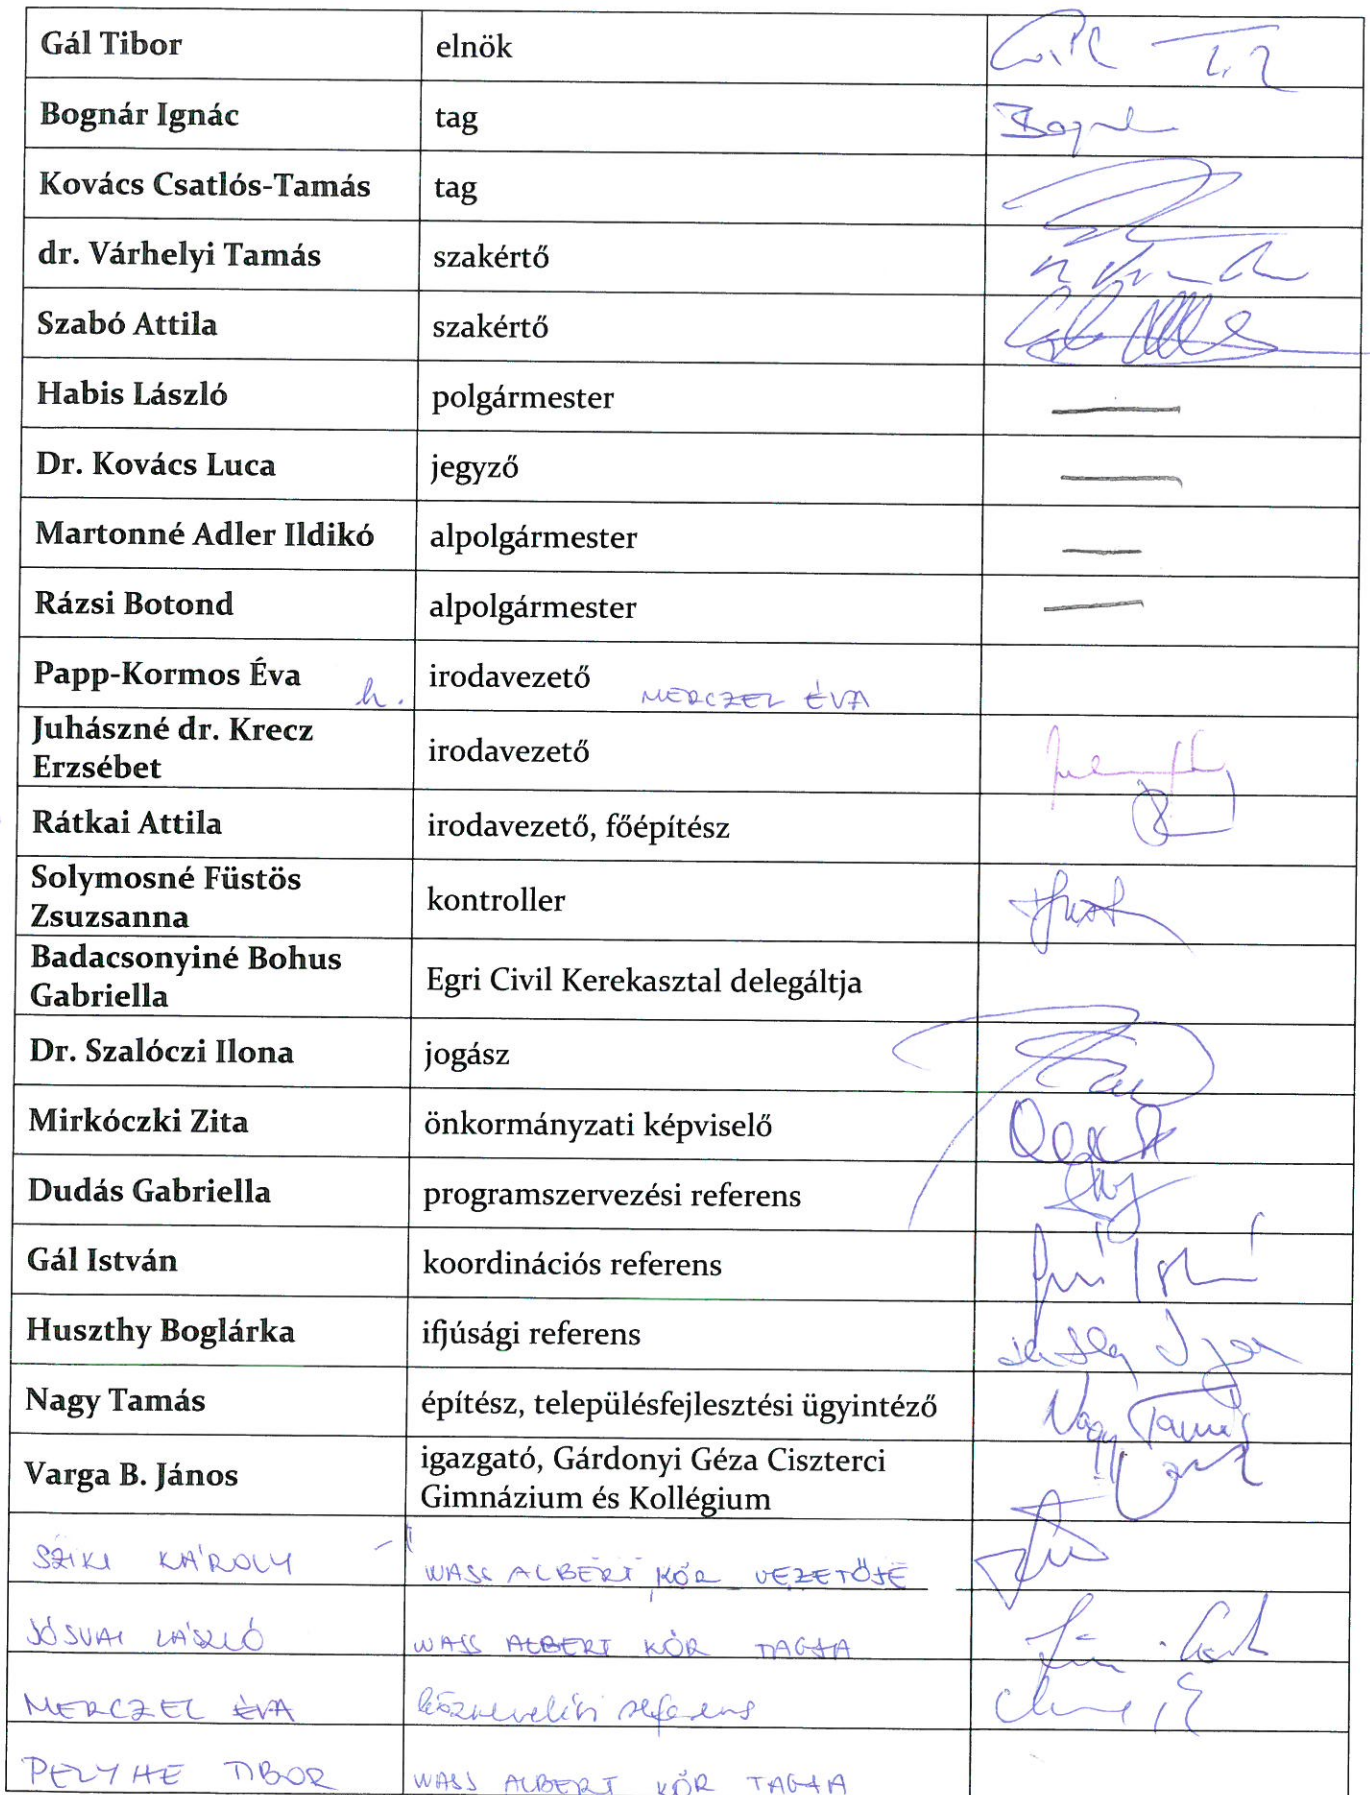 Gál Tibor elnök
Bognár Ignác tag
Kovács Csatlós-Tamás tag
dr. Várhelyi Tamás szakértő
Szabó Attila szakértő
Habis László polgármester
Dr. Kovács Luca jegyző
Martonné Adler Ildikó alpolgármester
Rázsi Botond alpolgármester
Papp-Kormos Éva h. irodavezető MERCZEL ÉVA
Juhászné dr. Krecz
Erzsébet
irodavezető
Rátkai Attila irodavezető, főépítész
Solymosné Füstös
Zsuzsanna
kontroller
Badacsonyiné Bohus
Gabriella
Egri Civil Kerekasztal delegáltja
Dr. Szalóczi Ilona jogász
Mirkóczki Zita önkormányzati képviselő
Dudás Gabriella programszervezési referens
Gál István koordinációs referens
Huszthy Boglárka ifjúsági referens
Nagy Tamás építész, településfejlesztési ügyintéző Nagy Tamás
Varga B. János
igazgató, Gárdonyi Géza Ciszterci
Gimnázium és Kollégium
SZIKI KÁROLY WASS ALBERT KÖR VEZETŐJE
JÓSVAI LÁSZLÓ WASS ALBERT KÖR TAGJA
MERCZEL ÉVA köznevelési referens
PELYHE TIBOR WASS ALBERT KÖR TAGJA